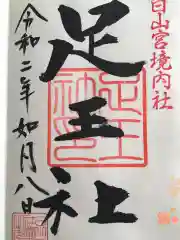 白山宮境内社
足王社
足王
神印
令和二年如月八日